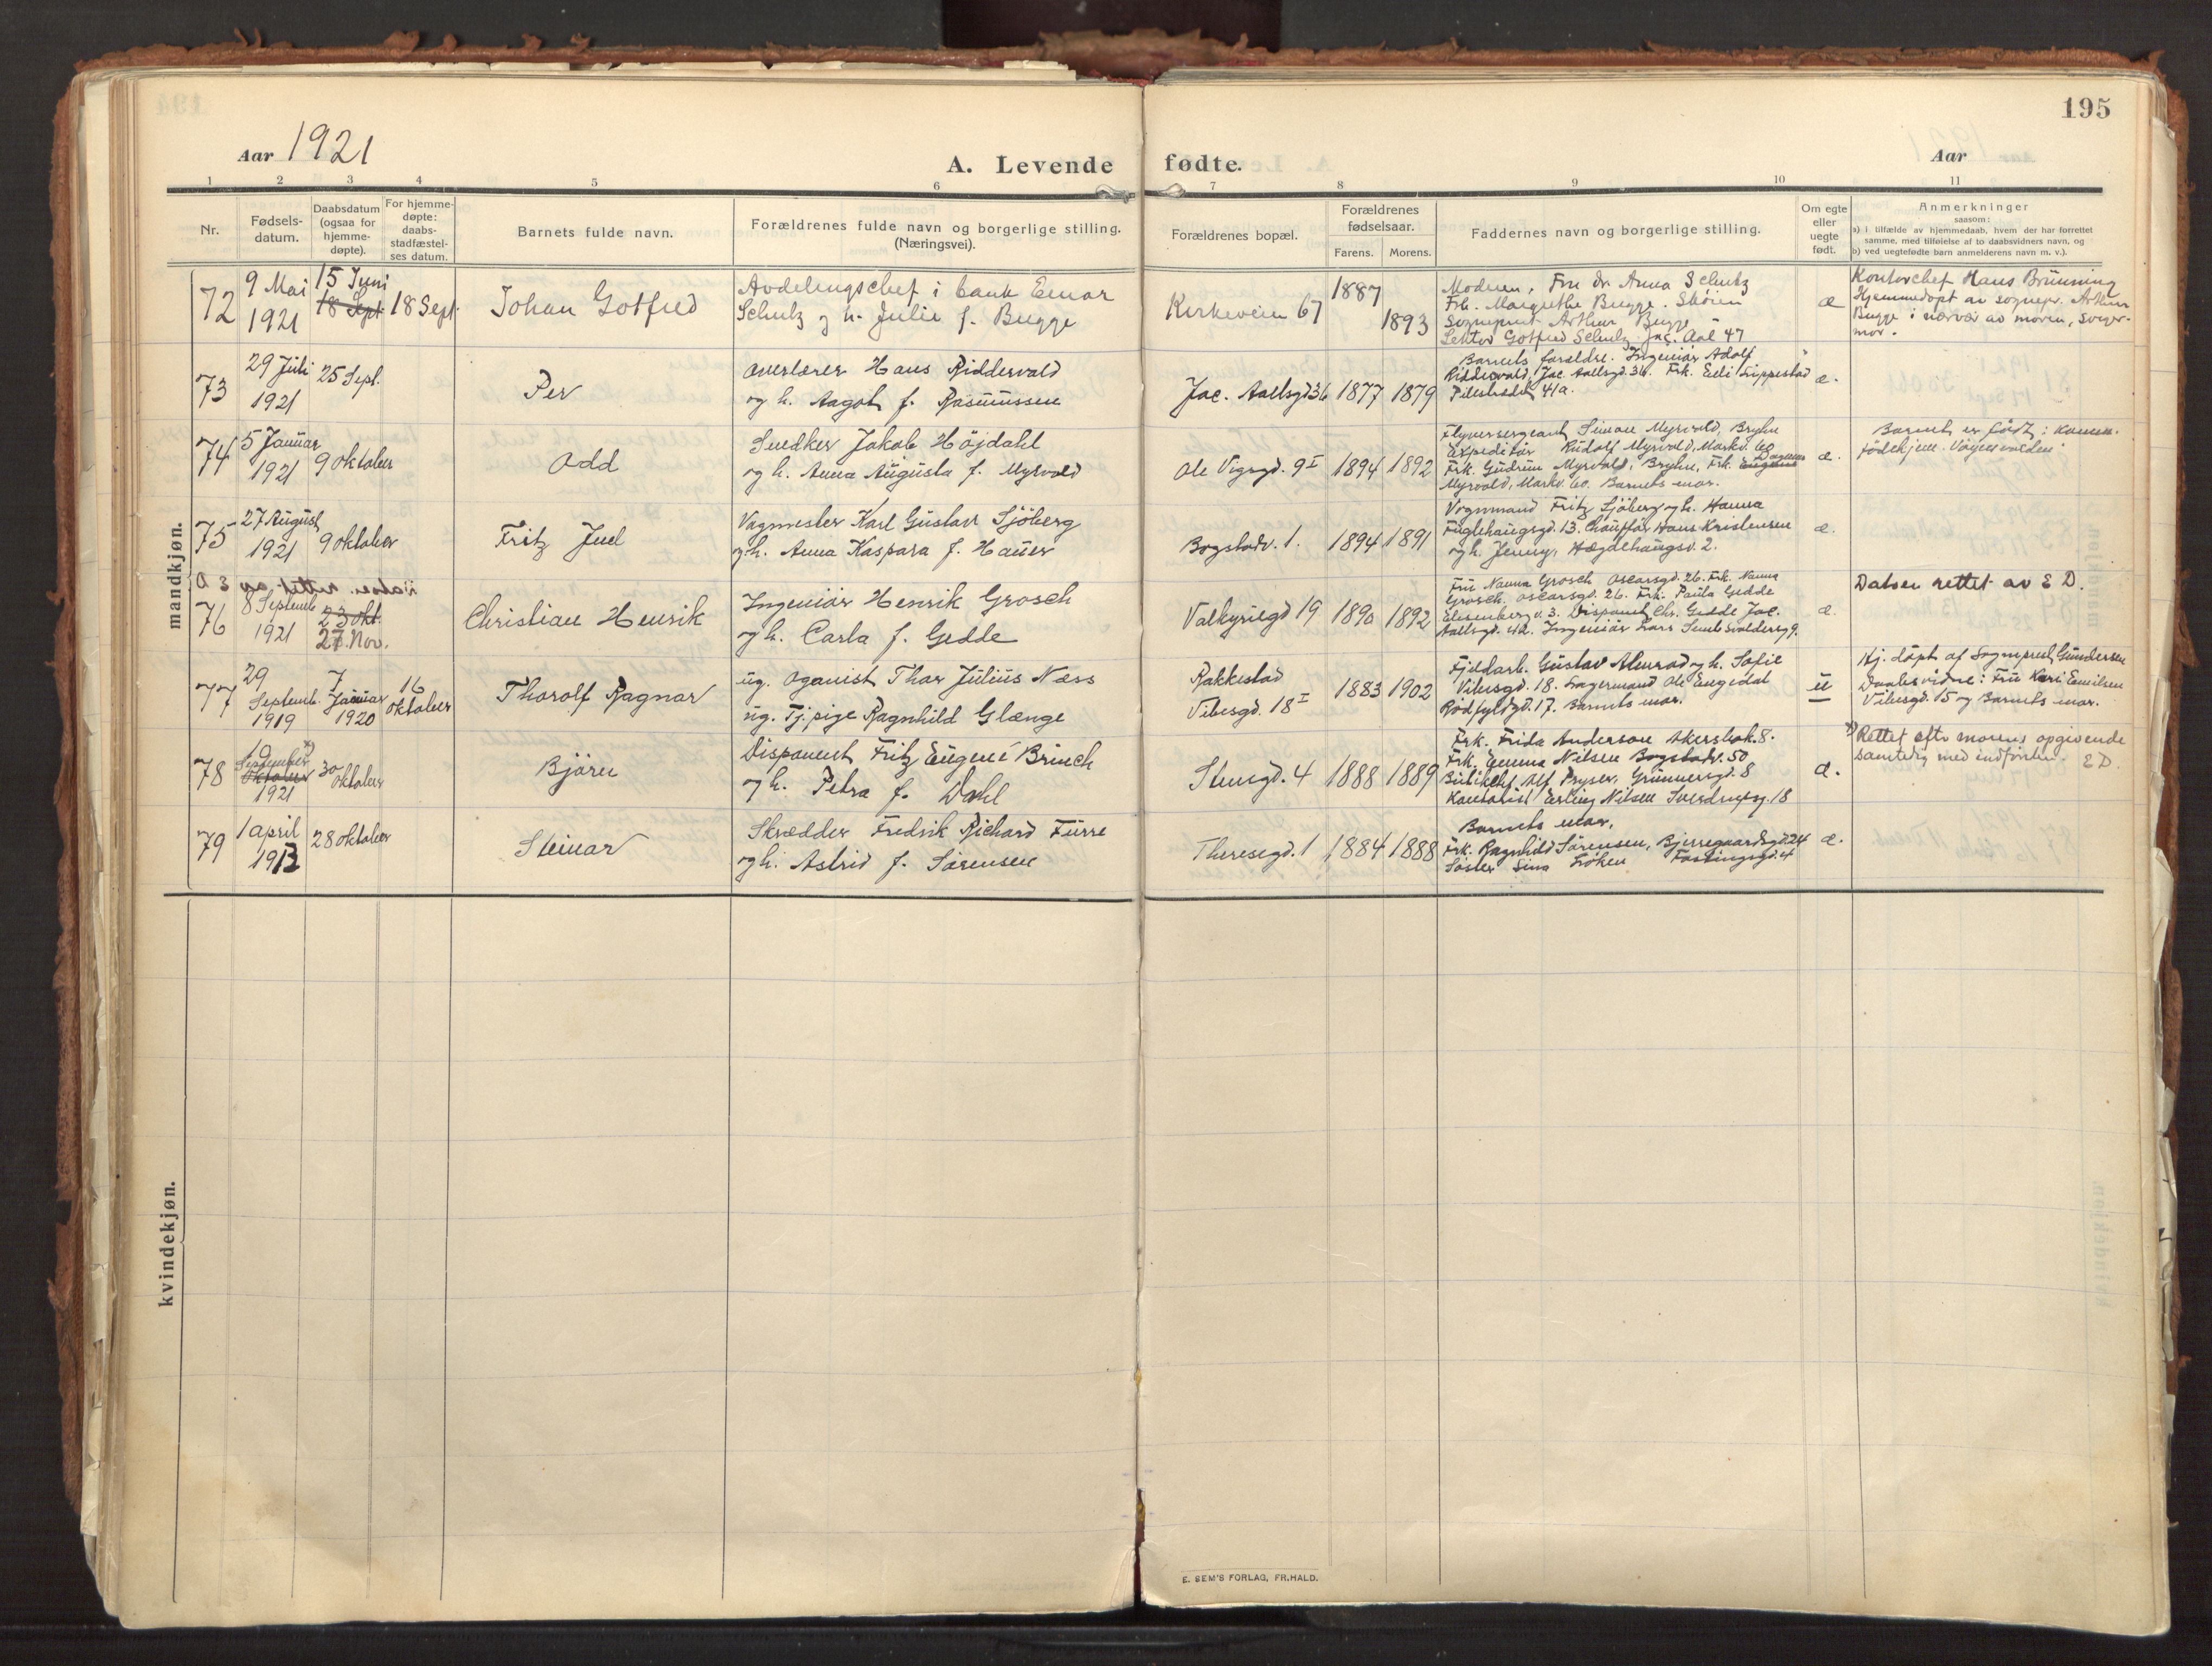 195
Aar 1921
A. Levende fødte.
Aar
1 2 3 4 5 6 7 8 9 10 11
Nr.
Fødsels-
datum.
Daabsdatum
(ogsaa for
hjemme-
døpte).
For hjemme-
døpte:
daabs-
stadfæstel-
ses datum.
Barnets fulde navn.
Forældrenes fulde navn og borgerlige stilling.
(Næringsvei).
Forældrenes bopæl.
Forældrenes
fødselsaar.
Farens. Morens.
Faddernes navn og borgerlige stilling.
Om egte
eller
uegte
født.
Anmerkninger
saasom:
a) i tilfælde av hjemmedaab, hvem der har forrettet
samme, med tilføielse af to daabsvidners navn, og
b) ved uegtefødte barn anmelderens navn m. v.).
mandkjøn.
72
9 Mai
1921
15 Juni
18 Sept
18 Sept.
Johan Gotfred
Avdelingschef i bank Einar
Schulz og h. Julie f. Bugge
Kirkeveien 67
1887
1893
Moderen, Fru Dr. Anna Schulz
Frk. Margrethe Bugge. Skøien
Sogneprest Arthur Bugge
Lektor Gotfred Schulz Jac. Aal 47
æ
Kontorchef Hans Brünning
Hjemmedøpt av sognepr. Arthur
Bugge i nærvær av moren, sviger-
mor.
73
29 Juli
1921
25 Sept.
Per
Overlærer Hans Riddervold
og h. Aagot f. Rasmussen
Jac. Aallsgd 36
1877 1879
Barnets forældre. Ingeniør Adolf
Riddervold, Jac Aallsgd. 36. Frk. Elli Trippestad
Pilestrædet 41a.
æ.
74
5 Januar
1921
9 Oktober
Odd
Snedker Jakob Höjdahl
og h. Anna Augusta f. Myrvold
Ole Vigsgd. 9 I
1894 1892
Flyversergeant Simon Myrvold, Bryhn
Expeditør Rudolf Myrvold, Markv. 60
Dagmar
Frk. Gudrun Myrvold, Bryhn, Frk.
Myrvold, Markv. 60. Barnets mor.
æ.
Barnet er født i komm.
Fødehjem.
75
27 August
1921
9 Oktober
Fritz Juel
Vognmester Karl Gustav Sjöberg
og h. Anna Kaspara f. Hauer
Bogstadv. 1.
1894 1891
Vognmand Fritz Sjöberg og h. Hanna
Fuglehaugsgd. 13. Chauffør Hans Kristensen
og h. Jenny, Hægdehaugsv. 2.
æ.
76
8 Septemb
1921
23 Okt.
27. Nov.
Christian Henrik
Ingeniör Henrik Grosch
og h. Carla f. Gedde
Valkyriegd 19
1890 1892
Fru Nanna Grosch Oscarsgd. 26. Frk. Nanna
Grosch. Oscarsgd. 26. Frk. Paula Gedde
Eilesenberg v. 3. Disponent Chr. Gedde Jac.
Aallsgd. 42. Ingeniör Lars
æ.
Datoen rettet av E D.
77
29
Septemb.
1919
7
Januar
1920
16
Oktober
Thorolf Ragnar
ug. Oganist Thor Julius Næss
ug. Tj.pige Ragnhild Glænge
Rakkestad
Vibesgd. 18 I
1883 1902
Fjeldarb. Gustav og h. Sofie
Vibesgd. 18. Lagermand Ole Engedal
Rødfyldgd. 17. Barnets mor.
u
Hj. døpt af Sogneprest Gundersen
Daabsvidne: Fru Kari Emilsen
Vibesgd. 15 og Barnets mor.
78
10 x)
September
Oktober
1921
30
Oktober
Björn
Disponent Fritz Eugene Brinch
og h. Petra f. Dahl
Stensgd. 4
1888 1889
Frk. Frida Anderson Akersbak. 8.
Frk. Emma Nilsen Bogstadv. 50
Alf Pryser, Grünnersgd. 8
Kontorist Erling Nilsen Sverdrupsg. 18
æ.
x) Rettet efter morens opgivende
samtidig med indførslen. E D.
79
1 April
1913
28 Oktober
Steinar
Skrædder Fredrik Richard Furre
og h. Astrid f. Sørensen
Theresegd. 1
1884 1888
Barnets mor.
Frk. Ragnhild Sørensen, Bjerregaardsgd. 24
Søster Sina Løken Fastingsgd. 4
æ.
kvindekjøn.
E. SEM'S FORLAG, FR.HALD.